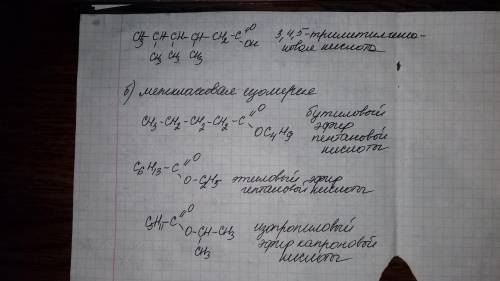 CH3-CH-CH-CH-CH2-C=O OH 3,4,5-триметилгекса-
CH3 CH3 CH3 новая кислота
б) межклассовая изомерия
CH3-CH2-CH2-CH2-C=O OC4H3 бутиловый
эфир
пентановой
кислоты
C6H13-C=O O-C2H5 этиловый эфир
гептановой кислоты
C5H11-C=O O-CH-CH3 CH3 изопропиловый
эфир капроновой
кислоты